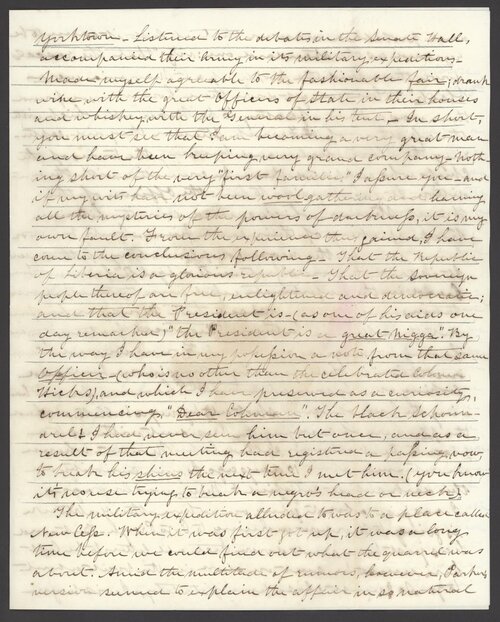 Yorktown - Listened to the debates in the Senate Hall,
accompanied their Army in its military expeditions -
Made myself agreeable to the fashionable fair; drank
wine with the great Officers of State in their houses
and whiskey with the General in his tent - In short,
you must see that I am becoming a very great man
and have been keeping very grand company - Noth-
ing short of the very "first families" I assure you - and
if my wits have not been wool gathering, and learning
all the mysteries of the powers of darkness, it is my
own fault. From the experience thus gained, I have
come to the conclusions following - That the Republic
of Liberia is a glorious republic - That the sovereign
people thereof are free, enlightened and democratic;
and that the President is - (as one of his aides one
day remarked) "the President is a great nigga". By
the way I have in my possession a note from that same
Officer - (who is no other than the celebrated Colonel
Hicks), and which I have preserved as a curiosity
commencing, "Dear Cohnean". The black scoun-
drel! I had never seen him but once, and as a
result of that meeting had registered a passing vow,
to break his shins the next time I met him. (You know
its no use trying to break a negro's head or neck)
The military expedition alluded to was to a place called
New Cess. When it was first got up, it was a long
time before we could find out what the quarrel was
about. Amid the multitude of rumors, however,
version seemed to explain the affair in so natural